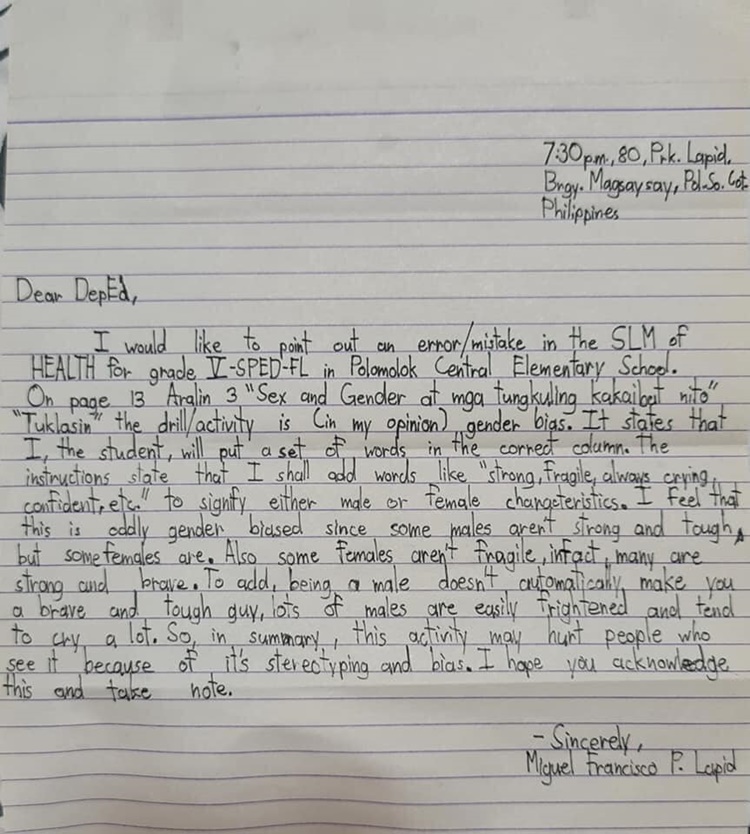 7:30pm, 80, Prk. Lapid.
Brgy. Magsaysay, Pol. So. Cot.
Philippines
Dear DepEd,
I would like to point out an error/mistake in the SLM of
HEALTH for grade V-SPED-FL in Polomolok Central Elementary School.
On page 13 Aralin 3 "Sex and Gender at mga tungkuling kakaibat nito"
"Tuklasin" the drill/activity is (in my opinion) gender bias. It states that
I, the student, will put a set of words in the correct column. The
instructions state that I shall add words like "strong, fragile, always crying,
confident, etc." to signify either male or female characteristics. I feel that
this is oddly gender biased since some males aren't strong and tough,
but some females are. Also some females aren't fragile, infact, many are
strong and brave. To add, being a male doesn't automatically make you
a brave and tough guy, lots of males are easily frightened and tend
to cry a lot. So, in summary, this activity may hurt people who
see it because of it's stereotyping and bias. I hope you acknowledge
this and take note.
- Sincerely,
Miguel Francisco P. Lapid